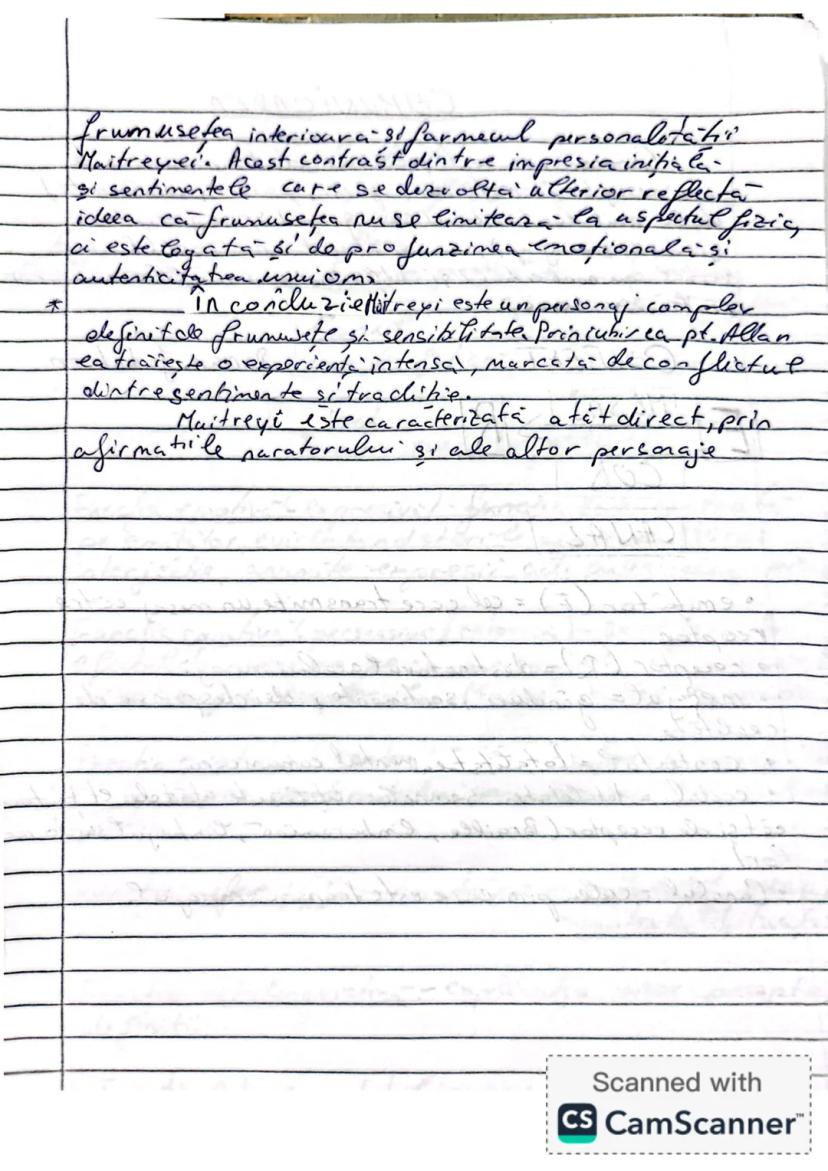 frumusețea interioară și farmecul personalității
Maitreyei. Acest contrast dintre impresia inițială
și sentimentele care se dezvoltă ulterior reflectă
ideea că frumusețea nu se limitează la aspectul fizic,
ci este legată și de profunzimea emoțională și
autenticitatea unui om.
* În concluzie Maitreyi este un personaj complex
definit de frumusețe și sensibilitate. Prin iubirea pt. Allan
ea trăiește o experiență intensă, marcată de conflictul
dintre sentimente și tradiție.
Maitreyi este caracterizată atât direct, prin
afirmațiile naratorului și ale altor personaje
Scanned with
CS CamScanner™